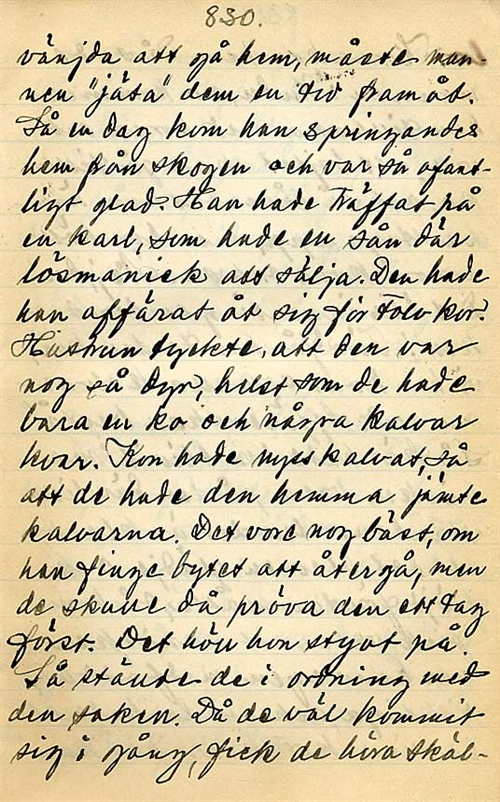 830.
vänjda att gå hem, måste man-
nen "jäta" dem en tid framåt.
Så en dag kom han springandes
hem från skogen och var så ofant-
ligt glad. Han hade träffat på
en karl, som hade en sån där
lösmanick att sälja. Den hade
han affärat åt sig för tolv kor.
Hustrun tyckte, att den var
nog så dyr, helst som de hade
bara en ko och några kalvar
kvar. Kon hade nyss kalvat, så
att de hade den hemma jämte
kalvarna. Det vore nog bäst, om
han finge bytet att återgå, men
de skulle då pröva den ett tag
först. Det höll hon styvt på.
Så stände de i ordning med
den saken. Då de väl kommit
sig i gång, fick de höra skäl-